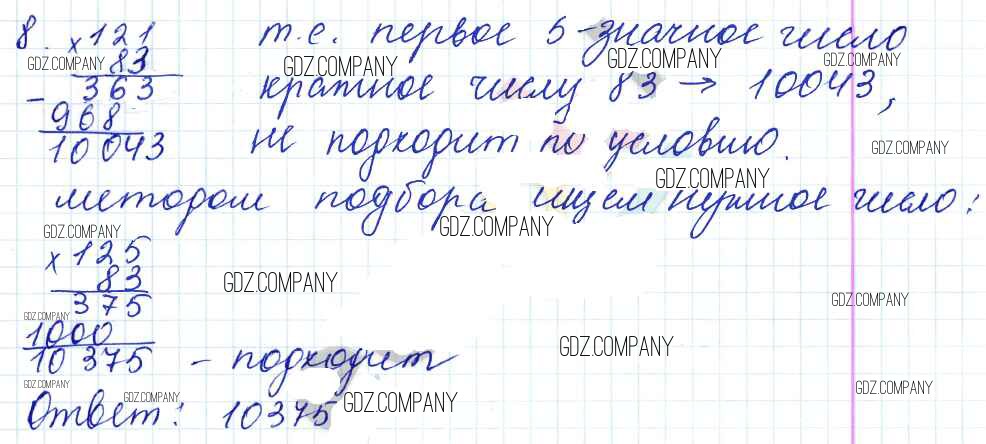 8. ×121 т.е. первое 5-значное число
GDZ.COMPANY 83 GDZ.COMPANY GDZ.COMPANY GDZ.COMPANY
– 363 кратное числу 83 → 10043,
968
10043 не подходит по условию. GDZ.COMPANY
GDZ.COMPANY
методом подбора ищем нужное число:
GDZ.COMPANY GDZ.COMPANY
×125
83 GDZ.COMPANY
375 GDZ.COMPANY
GDZ.COMPANY
1000
10375 – подходит GDZ.COMPANY
GDZ.COMPANY GDZ.COMPANY
Ответ: 10375 GDZ.COMPANY GDZ.COMPANY